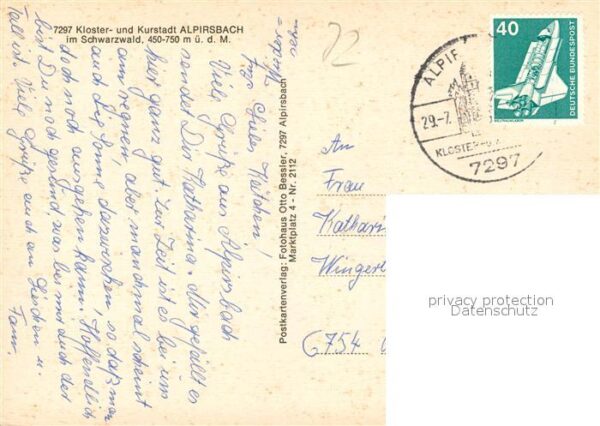 7297 Kloster- und Kurstadt ALPIRSBACH
im Schwarzwald, 450-750 m ü. d. M.
Liebes Kätchen
Viele Grüße aus Alpirsbach
sendet Dir Katharina. Mir gefällt es
hier ganz gut. Zur Zeit ist es bei uns
am regnen, aber manchmal scheint
auch die Sonne dazwischen, so daß man
doch noch ausgehen kann. Hoffendlich
bist Du noch gesund, was bei mir auch der
Fall ist. Viele Grüße auch an Lieschen u.
Fam.
Postkartenverlag: Fotohaus Otto Bessler, 7297 Alpirsbach
Marktplatz 4 - Nr. 2112
72
40
DEUTSCHE BUNDESPOST
ALPIR
29.-7.
KLOSTER-U.
7297
An
Frau
Kathari
Winger
6754
privacy protection
Datenschutz